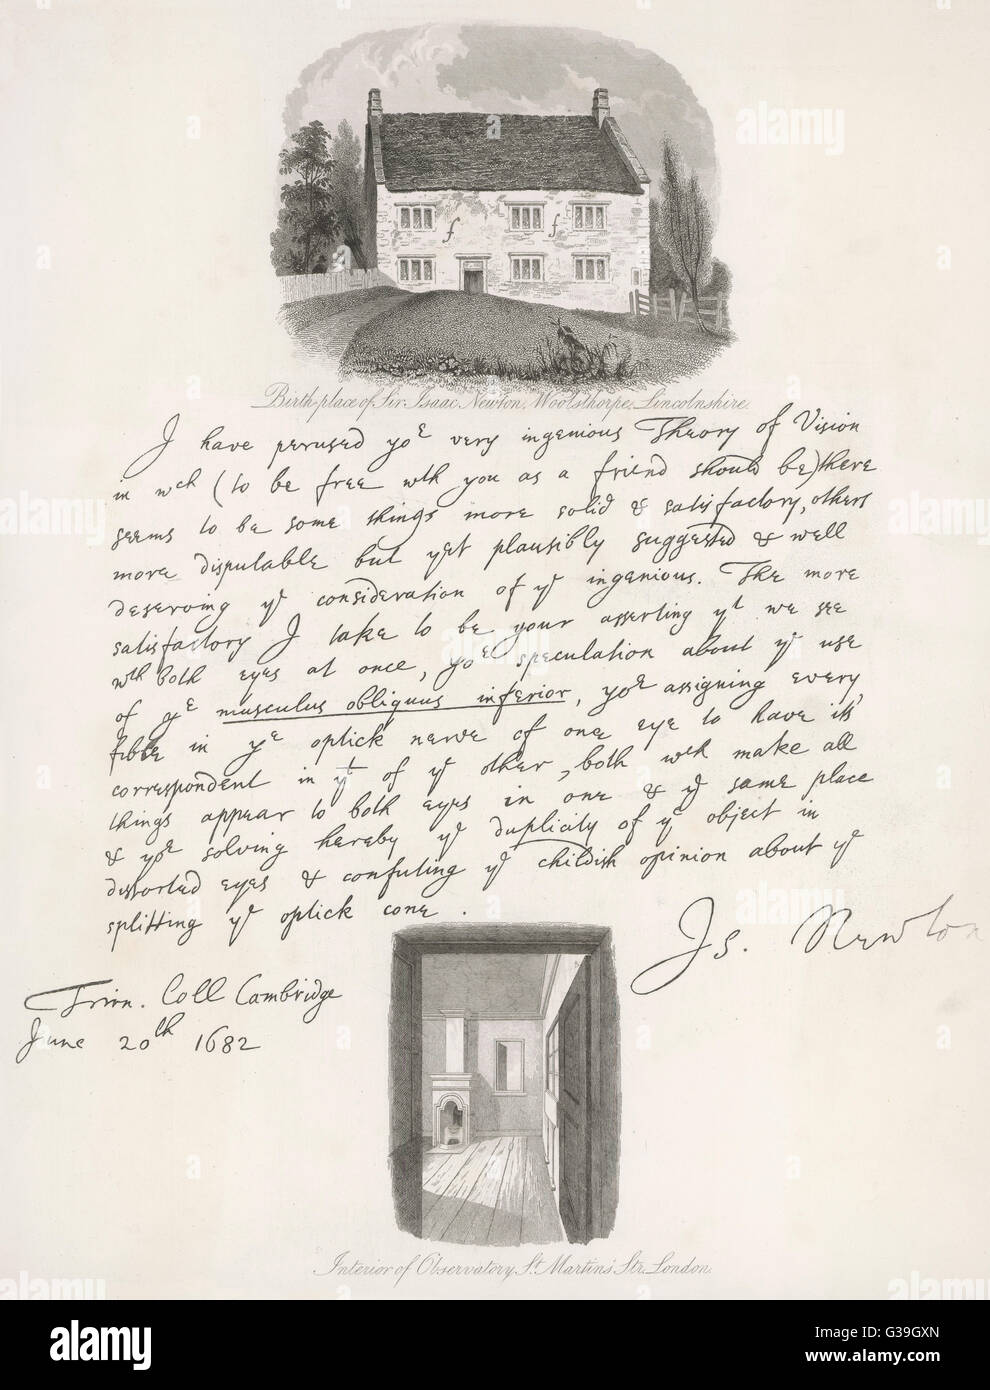 Birth-place of Sir Isaac Newton, Woolsthorpe, Lincolnshire.
I have perused yoe very ingenious Theory of Vision
in wch (to be free wth you as a friend should be) there
seems to be some things more solid & satisfactory, others
more disputable but yet plausibly suggested & well
deserving ye consideration of ye ingenious. The more
satisfactory I take to be your asserting yt we see
wth both eyes at once, yoe speculation about ye use
of ye musculus obliquus inferior, yoe assigning every
fibre in ye optick nerve of one eye to have its
correspondent in yt of ye other, both wch make all
things appear to both eyes in one & ye same place
& yoe solving hereby ye duplicity of ye object in
distorted eyes & confuting ye childish opinion about ye
splitting ye optick cone.
Is. Newton
Trin. Coll Cambridge
June 20th 1682
Interior of Observatory St. Martin's Str. London.
alamy
Image ID: G39GXN
www.alamy.com